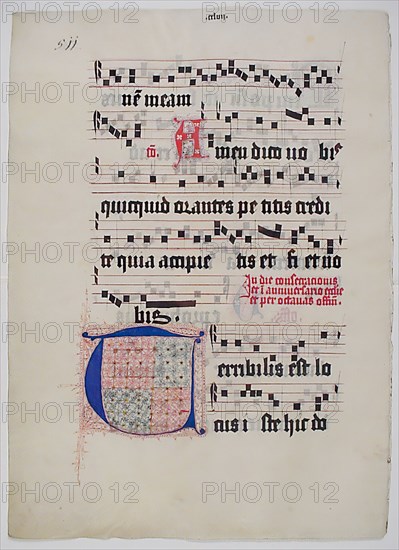 .cclvij.
511
nē meam
co. Amen dico vo bis
quicquid orantes pe titis credi
te quia accipie tis et fi et vo
bis.
In die consecrationis
et ī anniversario eccīe
et per octavas offm̄.
Terribilis est lo
cus i ste hic do